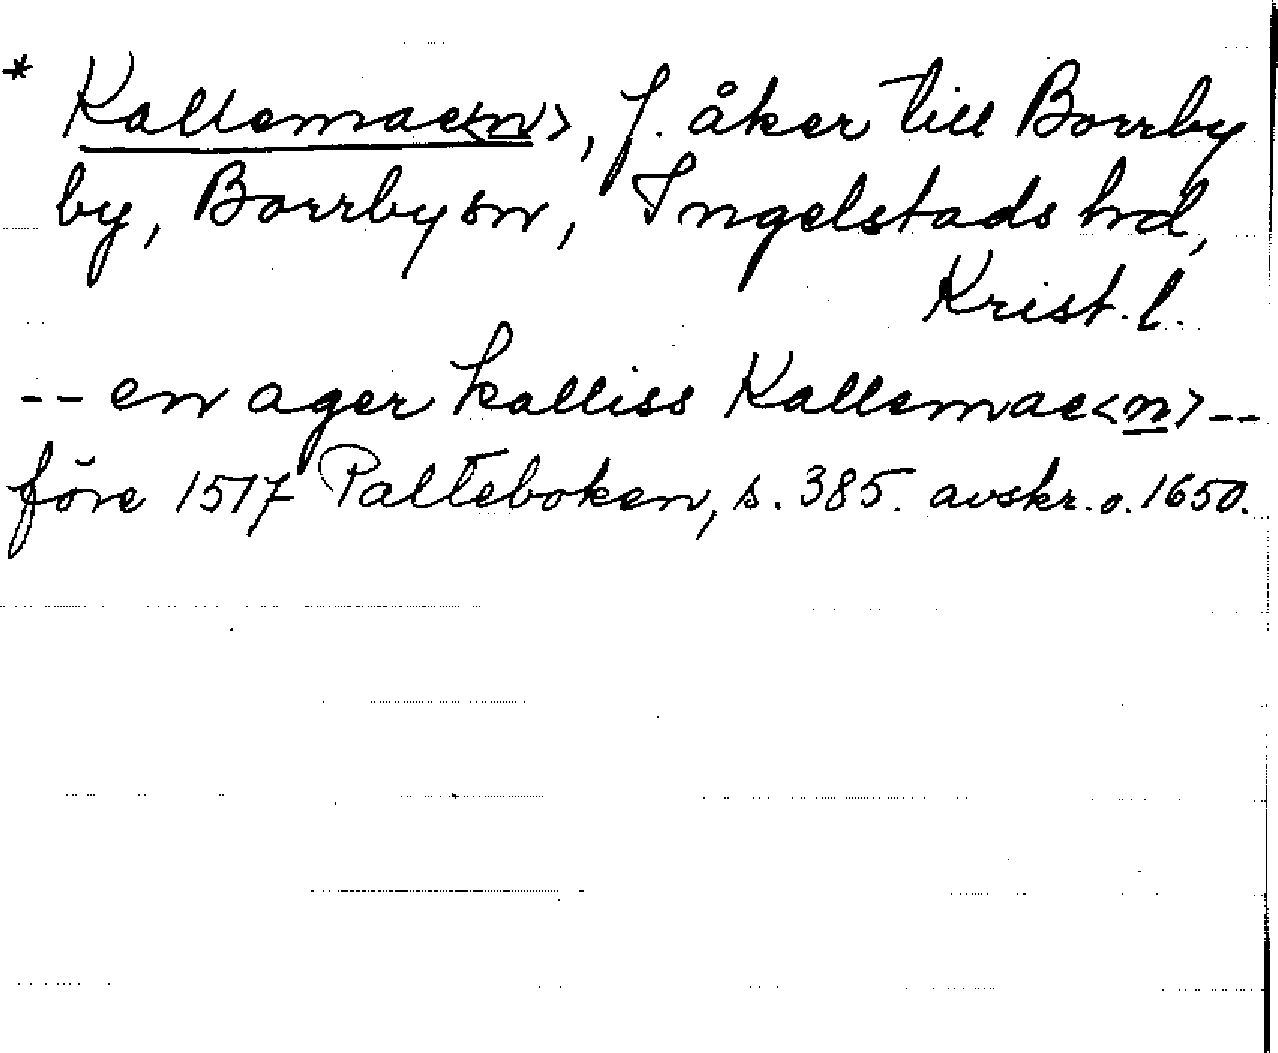 * Kallemae<n>, f. åker till Borrby
by, Borrby sn, Ingelstads hrd,
Krist. l.
-- en ager kalliss Kallemae<n> --
före 1517 Palteboken, s. 385. avskr. o. 1650.